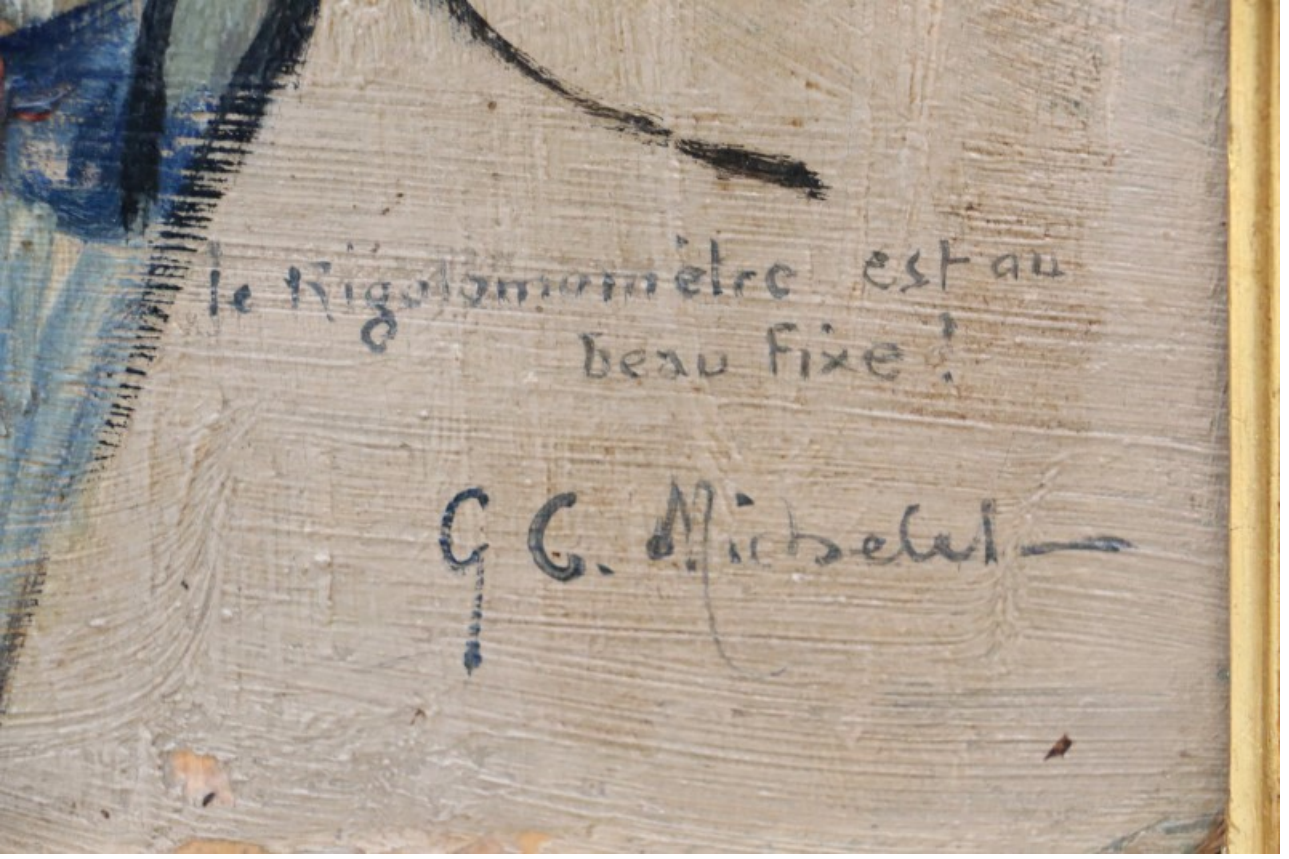 le Rigolomomètre est au
beau fixe !
G C. Michelet